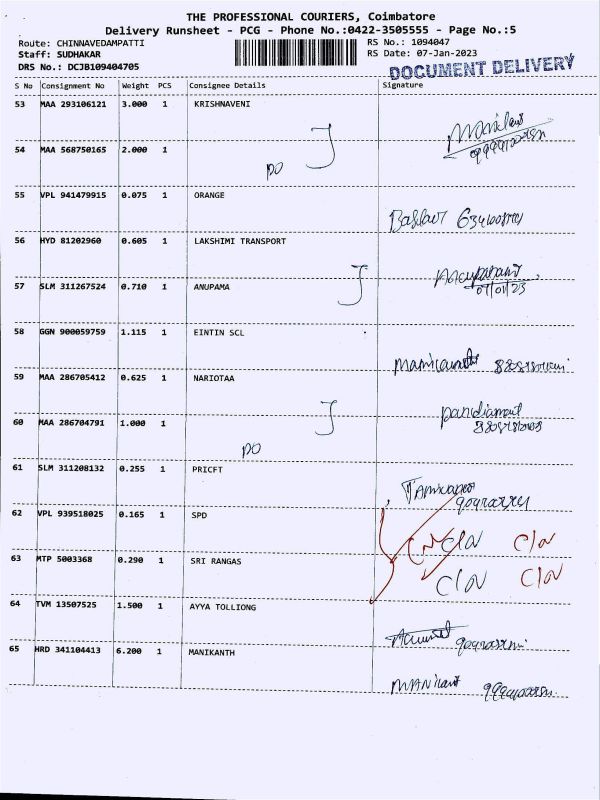 THE PROFESSIONAL COURIERS, Coimbatore
Delivery Runsheet - PCG - Phone No.:0422-3505555 - Page No.:5
Route: CHINNAVEDAMPATTI RS No.: 1094047
Staff: SUDHAKAR RS Date: 07-Jan-2023
DRS No.: DCJB109404705 DOCUMENT DELIVERY
S No Consignment No Weight PCS Consignee Details Signature
53 MAA 293106121 3.000 1 KRISHNAVENI
54 MAA 568750165 2.000 1
PO
55 VPL 941479915 0.075 1 ORANGE
56 HYD 81202960 0.605 1 LAKSHIMI TRANSPORT
57 SLM 311267524 0.710 1 ANUPAMA
07/01/23
58 GGN 900059759 1.115 1 EINTIN SCL
59 MAA 286705412 0.625 1 NARIOTAA
60 MAA 286704791 1.000 1
PO
61 SLM 311208132 0.255 1 PRICFT
62 VPL 939518025 0.165 1 SPD
C/N C/N
63 MTP 5003368 0.290 1 SRI RANGAS
C/N C/N
64 TVM 13507525 1.500 1 AYYA TOLLIONG
65 HRD 341104413 6.200 1 MANIKANTH